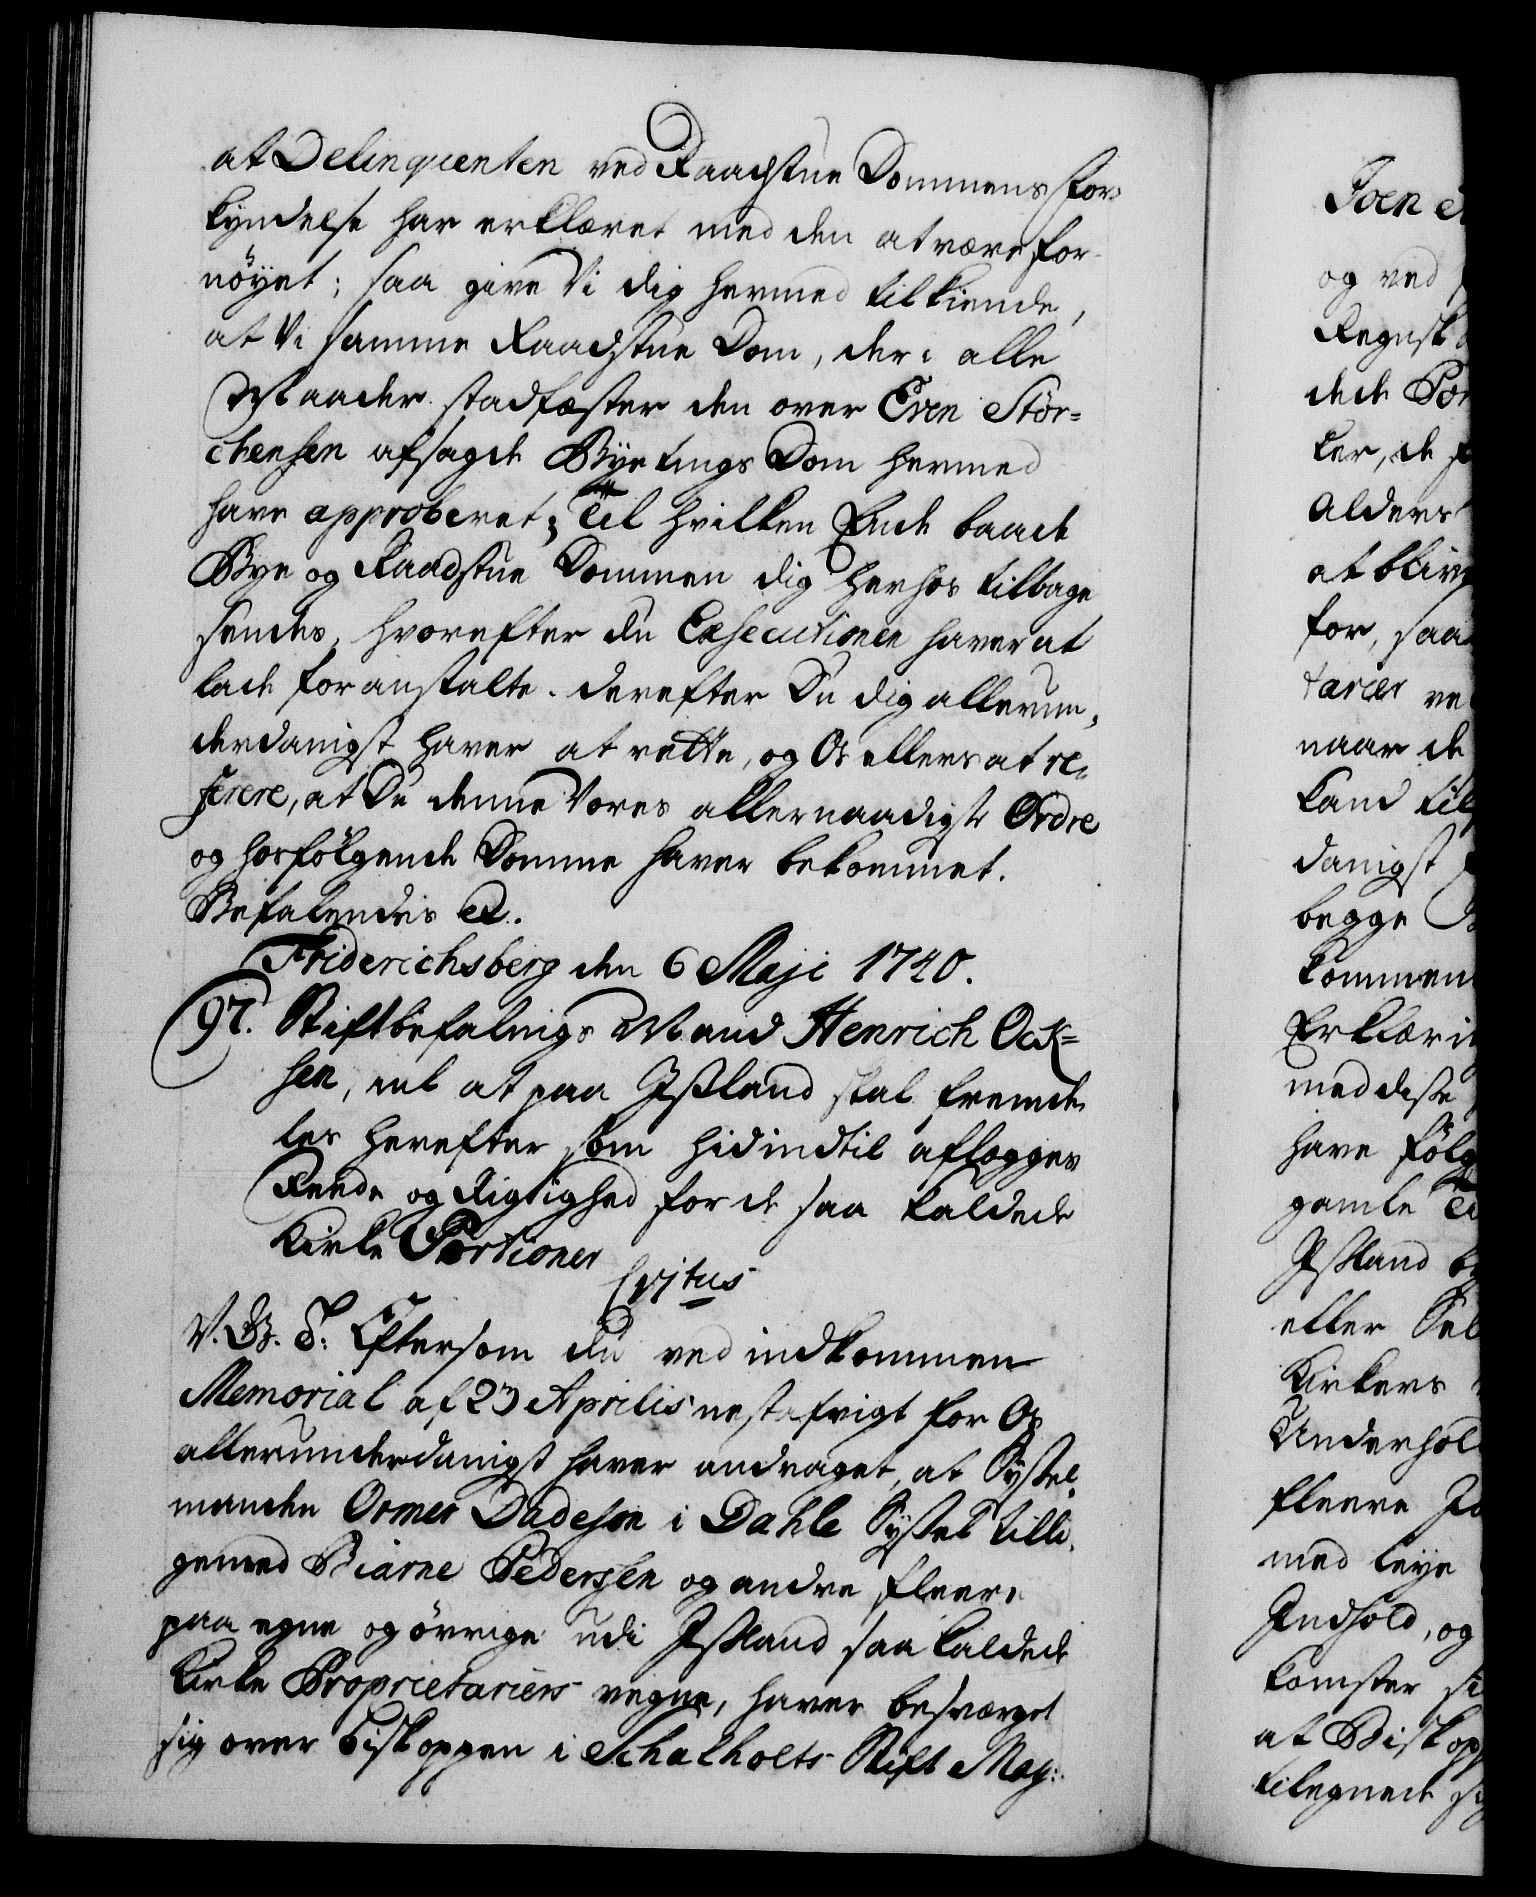 at Delinqventen ved Raadstue Dommens For-
kyndelse har erklæret med den at være for-
nöyet; saa give Vi dig hermed tilkiende,
at Vi samme Raadstue Dom, der i alle
Maader stadfæster den over Even Stör-
chensen afsagde Byetings Dom hermed
have approberet; Til hvilken Ende baade
Bye og Raadstue Dommen dig herhos tilbage
sendes, hvorefter du Exsecutionen haver at
lade foranstalte. Derefter Du dig allerun-
derdanigst haver at rette, og Os ellers at re-
ferere, at Du denne Vores allernaadigste Ordre
og hosfölgende Domme haver bekommet.
Befalendes &c.
Friderichsberg den 6 Maji 1740.
97. Stiftbefalings Mand Henrich Ock-
sen, anl at paa Ißland skal fremde-
les herefter som hidindtil aflegges
Reede og Rigtighed for de saa kaldede
Kirke Portioner
V. G. T: Eftersom du ved indkommen
Memorial af 23 Aprilis nestafvigt for Os
allerunderdanigst haver andraget, at Syssel-
manden Ormer Dadesøn i Dahle Syssel tilli-
gemed Biarne Pedersen og andre fleere
paa egne og övrige udi Ißland saa kaldede
Kirke Proprietariers vegne, haver besværget
sig over Biskoppen i Schalholts Stift Mag:
Joen
og ved
Regnsk
dede Por
ker, de
Alders
at blive
for, saa
tarier ve
naar de
kand til
danigst
begge
kommen
Erklæri
med disse
have fölg
gamle
Ißland
eller Sel
Kirkers
Underhol
fleere
med leye
Indhold, og
komster
at Biskop
tilegnede